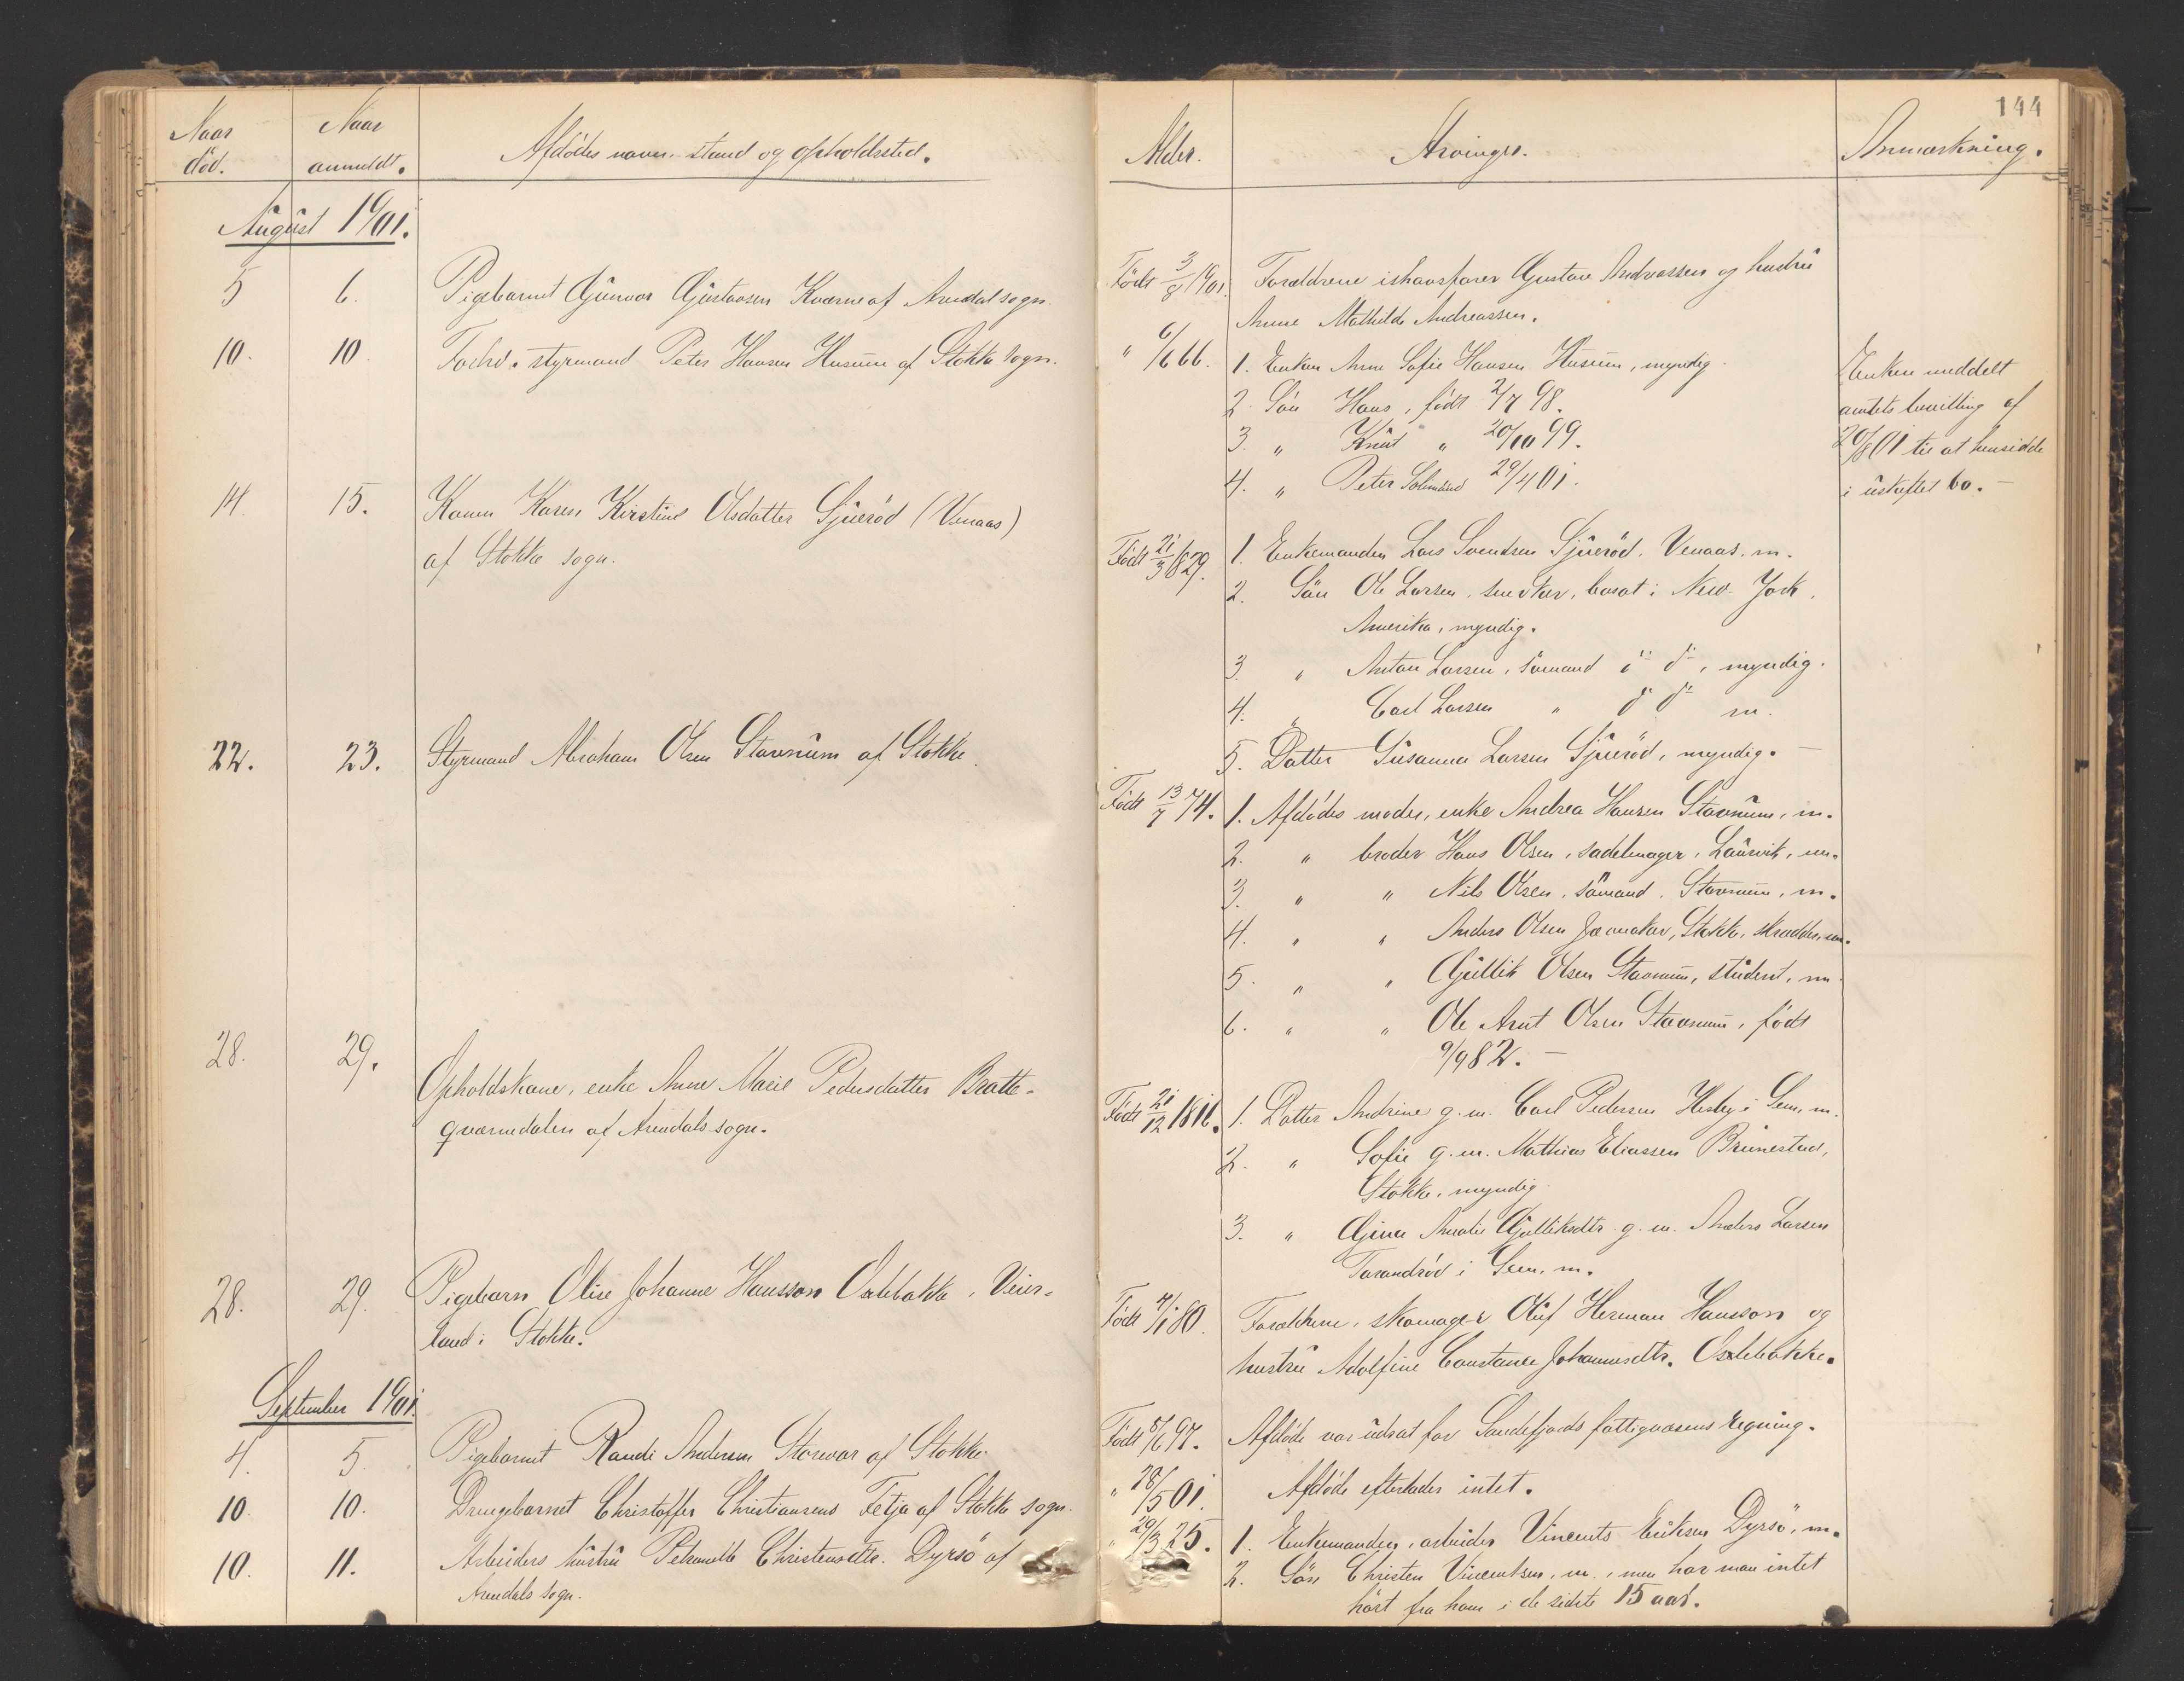 144
Naar død.
Naar anmeldt.
Afdødes navn, stand og opholdssted.
Alder.
Arvinger.
Anmærkning.
August 1901.
5 6. Pigebarnet Gunvor Gustavsen Kværne af Arendal sogn.
Født 3/8 1901. Forældrene ishavsfarer Gustav Andreassen og hustru
Anne Mathilde Andreassen.
10. 10. Forhv. styrmand Peter Hansen Husum af Stokke sogn.
" 6/6 66. 1. Enken Anne Sofie Hansen Husum, myndig.
2. Søn Hans, født 2/7 98.
3. " Knut " 20/10 99.
4. " Peter 29/4 01.
Enken meddelt
amtets bevilling af
20/8 01 til at hensidde
i uskiftet bo. –
14. 15. Konen Karen Kirstine Olsdatter Sjuerød (Venaas)
af Stokke sogn.
Født 21/3 1829. 1. Enkemanden Lars Svendsen Sjuerød, Venaas. m.
2. Søn Ole Larsen, snedker, bosat i New York,
Amerika, myndig.
3. " Anton Larsen, sømand do do, myndig.
4. " Carl Larsen " do do m.
5. Datter Susanna Larsen Sjuerød, myndig. –
22. 23. Styrmand Abraham Olsen Stavnum af Stokke.
Født 13/7 74. 1. Afdødes moder, enke Andrea Hansen Stavnum, m.
2. " broder Hans Olsen, sadelmager, Laurvik, m.
3. " " Nils Olsen, sømand, Stavnum, m.
4. " " Anders Olsen Stokke, skrædder, m.
5. " " Gullik Olsen Stavnum, student, m.
6. " " Ole Arnt Olsen Stavnum, født
9/9 82. –
28. 29. Opholdskone, enke Anne Marie Pedersdatter Bratte-
qværnedalen af Arendals sogn.
Født 21/12 1818. 1. Datter Andrine g. m. Carl Pedersen Hesby i Sem, m.
2. " Sofie g. m. Mathias Eliassen Brunestad,
Stokke, myndig.
3. " Gina Amalie Gulliksdtr. g. m. Anders Larsen
Tarandrød i Sem. m.
28. 29. Pigebarn Olise Johanne Hansson Oxebakke, Veier-
land i Stokke.
Født 4/1 80. Forældrene, skomager Oluf Herman Hansson og
hustru Adolfine Constance Johannesdtr. Oxebakke.
September 1901.
4. 5. Pigebarnet Randi Andersen Storevar af Stokke
Født 8/6 97. Afdøde var udsat for Sandefjords fattigvæsens regning.
10 10. Drengebarnet Christoffer Christiansens Fetja af Stokke sogn.
" 28/5 01. Afdøde efterlader intet.
10. 11. Arbeiders hustru Petronelle Christensdtr. Dyrsø af
Arendals sogn.
" 29/3 25. 1. Enkemanden, arbeider Vincents Eriksen Dyrsø, m.
2. Søn Christen Vincentsen, m., men har man intet
hørt fra ham i de sidste 15 aar.